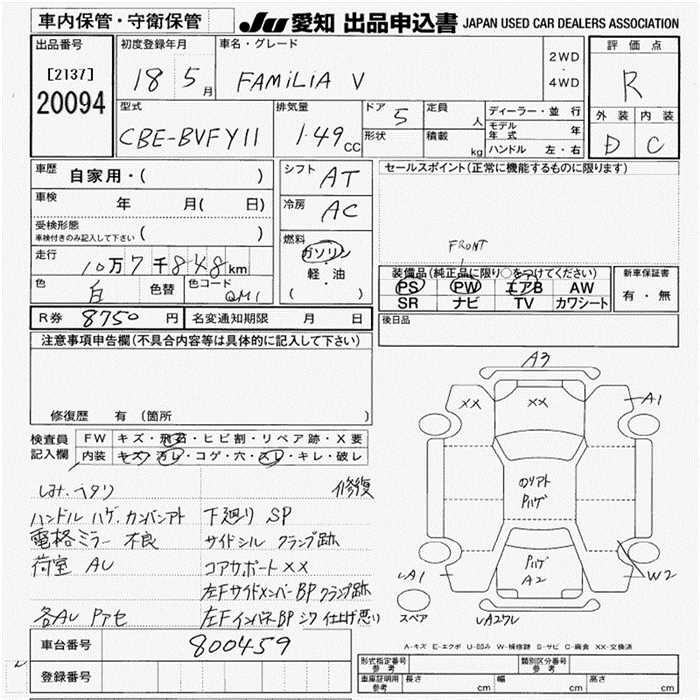 車内保管・守衛保管 JU 愛知 出品申込書 JAPAN USED CAR DEALERS ASSOCIATION
出品番号 初度登録年月 車名・グレード 評価点
[2137] 18 5月 FAMiLiA V 2WD・4WD R
20094 型式 排気量 ドア 5 定員 人 ディーラー・並行 外装 内装
CBE-BVFY11 1.49cc 形状 積載 kg モデル年式 年 D C
ハンドル 左・右
車歴 自家用・( ) シフト AT セールスポイント(正常に機能するものに限ります)
車検 年 月( 日) 冷房 AC
受検形態
車検付きのみ記入して下さい ( )
燃料 FRONT
走行 10万7千848km ガソリン 装備品(純正品に限り○をつけてください) 新車保証書
色 白 色替 色コード QM1 軽・油 PS PW エアB AW 有・無
( ) SR ナビ TV カワシート
R券 8750円 名変通知期限 月 日 後日品
注意事項申告欄(不具合内容等は具体的に記入して下さい)
A3
XX XX A1
修復歴 有 (箇所
検査員 FW キズ・飛石・ヒビ割・リペア跡・X要
記入欄 内装 キズ・汚レ・コゲ・穴・スレ・キレ・破レ
しみ.ヘタリ 修復
のリアト Pハゲ
ハンドル ハゲ.カンバンアト 下廻り SP
電格ミラー 不良 サイドシル クランプ跡
荷室 AU コアサポート XX
Pハゲ A2
A1 W2
左Fサイドメンバー BP クランプ跡
スペア
各AU Pアセ 左Fインパネ BP シワ 仕上げ悪リ
A-キズ E-エクボ U-凹み W-補修跡 S-サビ C-腐食 XX-交換済
車台番号 800459
型式指定番号 参考 類別区分番号 参考
登録番号 車庫証明用 参考 長さ cm 幅 cm 高さ cm